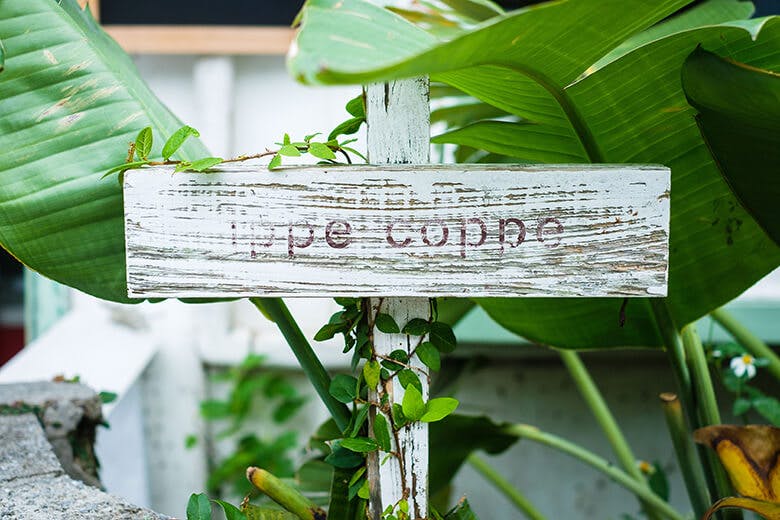 ippe coppe